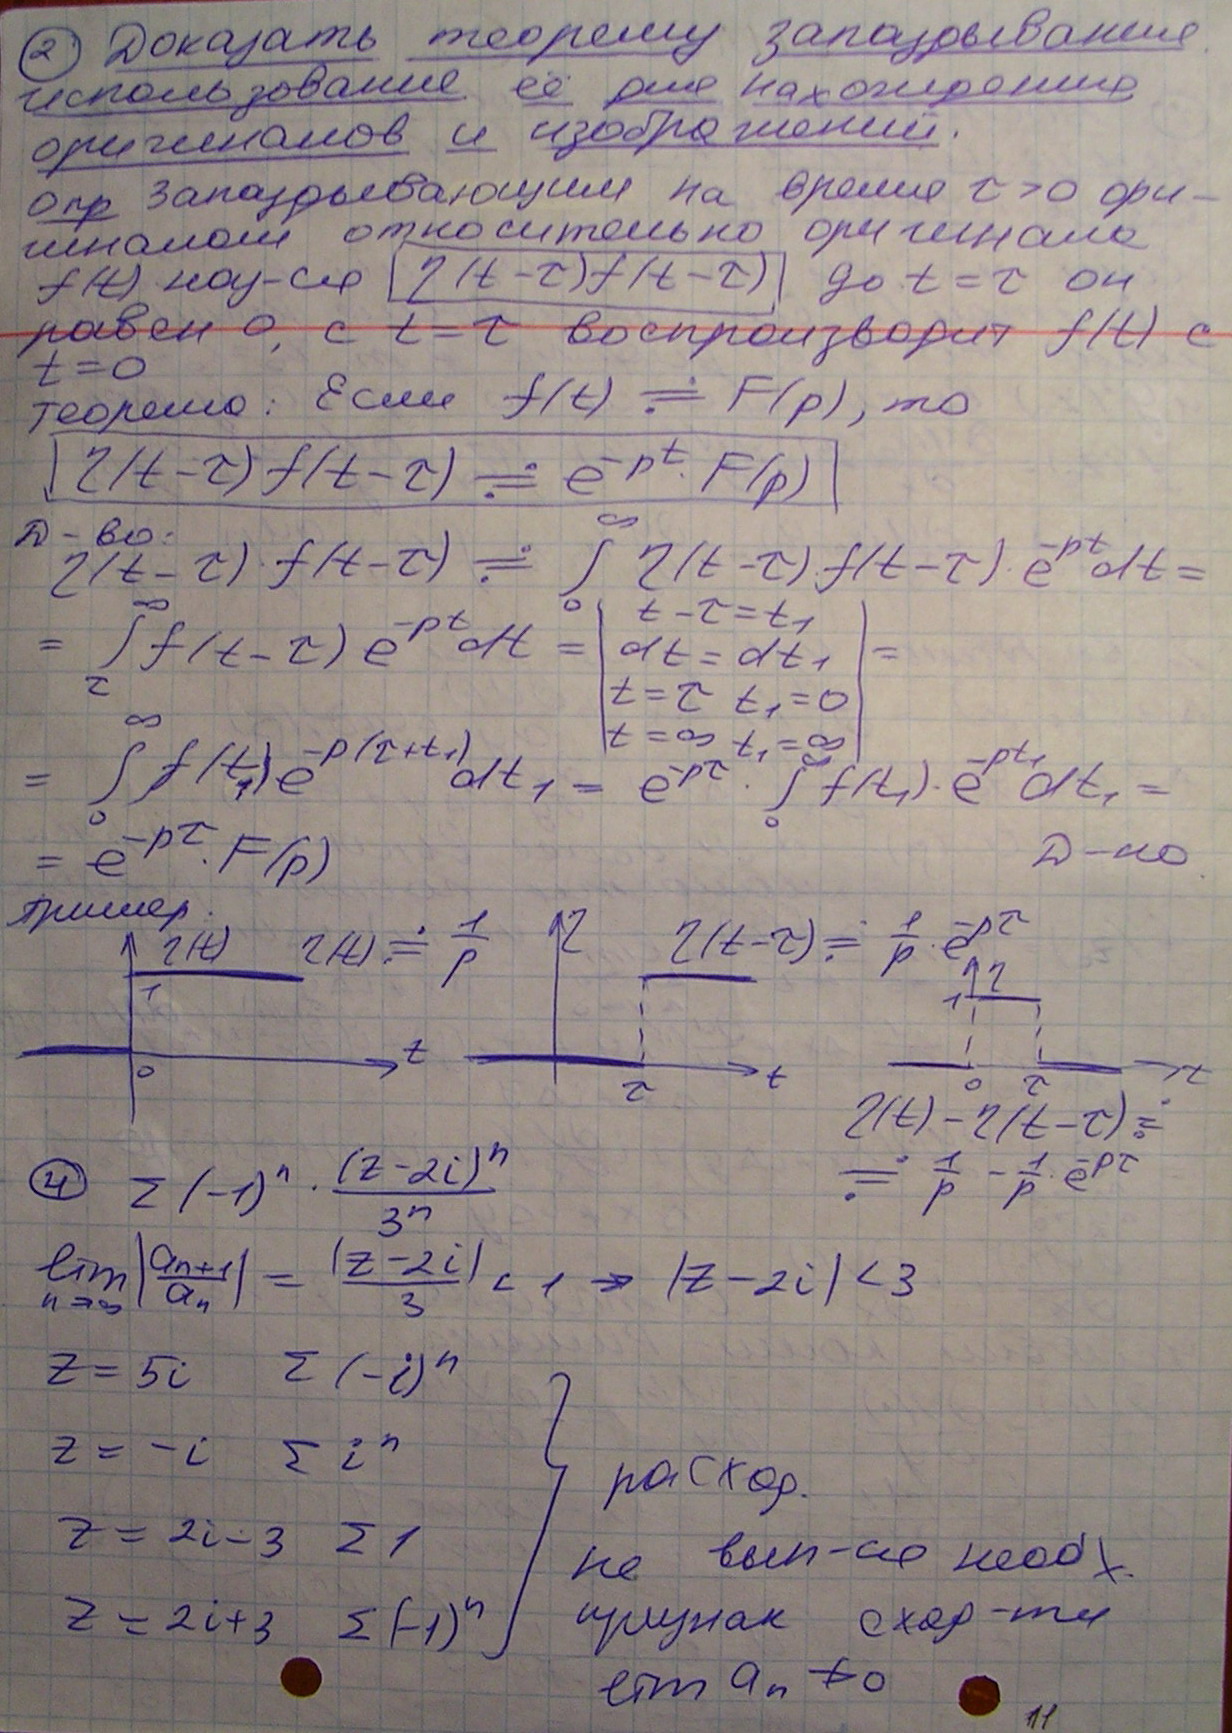 ② Доказать теорему запаздывания.
использование её для нахождения
оригиналов и изображений.
Опр Запаздывающим на время τ>0 ори-
гиналом относительно оригинала
f(t) наз-ся η(t-τ)f(t-τ) до t=τ он
равен 0, с t=τ воспроизводит f(t) с
t=0
теорема: Если f(t) ≓ F(p), то
η(t-τ) f(t-τ) ≓ e^{-pt}·F(p)
Д-во:
η(t-τ)·f(t-τ) ≓ ∫_0^∞ η(t-τ)·f(t-τ)·e^{-pt}dt =
= ∫_τ^∞ f(t-τ) e^{-pt}dt = | t-τ=t₁
dt=dt₁
t=τ t₁=0
t=∞ t₁=∞ | =
= ∫_0^∞ f(t₁)e^{-p(τ+t₁)}dt₁ = e^{-pτ}·∫_0^∞ f(t₁)·e^{-pt₁}dt₁ =
= e^{-pτ}·F(p) Д-но.
пример:
η(t) η(t) ≓ 1/p η η(t-τ) ≓ 1/p·e^{-pτ}
1 1 η
0 t τ t 0 τ t
η(t)-η(t-τ) ≓
≓ 1/p - 1/p·e^{-pτ}
④ Σ(-1)^n · (z-2i)^n / 3^n
lim_{n→∞} |a_{n+1}/a_n| = |z-2i|/3 < 1 → |z-2i|<3
z=5i Σ(-i)^n
z=-i Σ i^n
z=2i-3 Σ1
z=2i+3 Σ(-1)^n
расход.
не вып-ся необх.
признак сход-ти
lim a_n ≠0
11